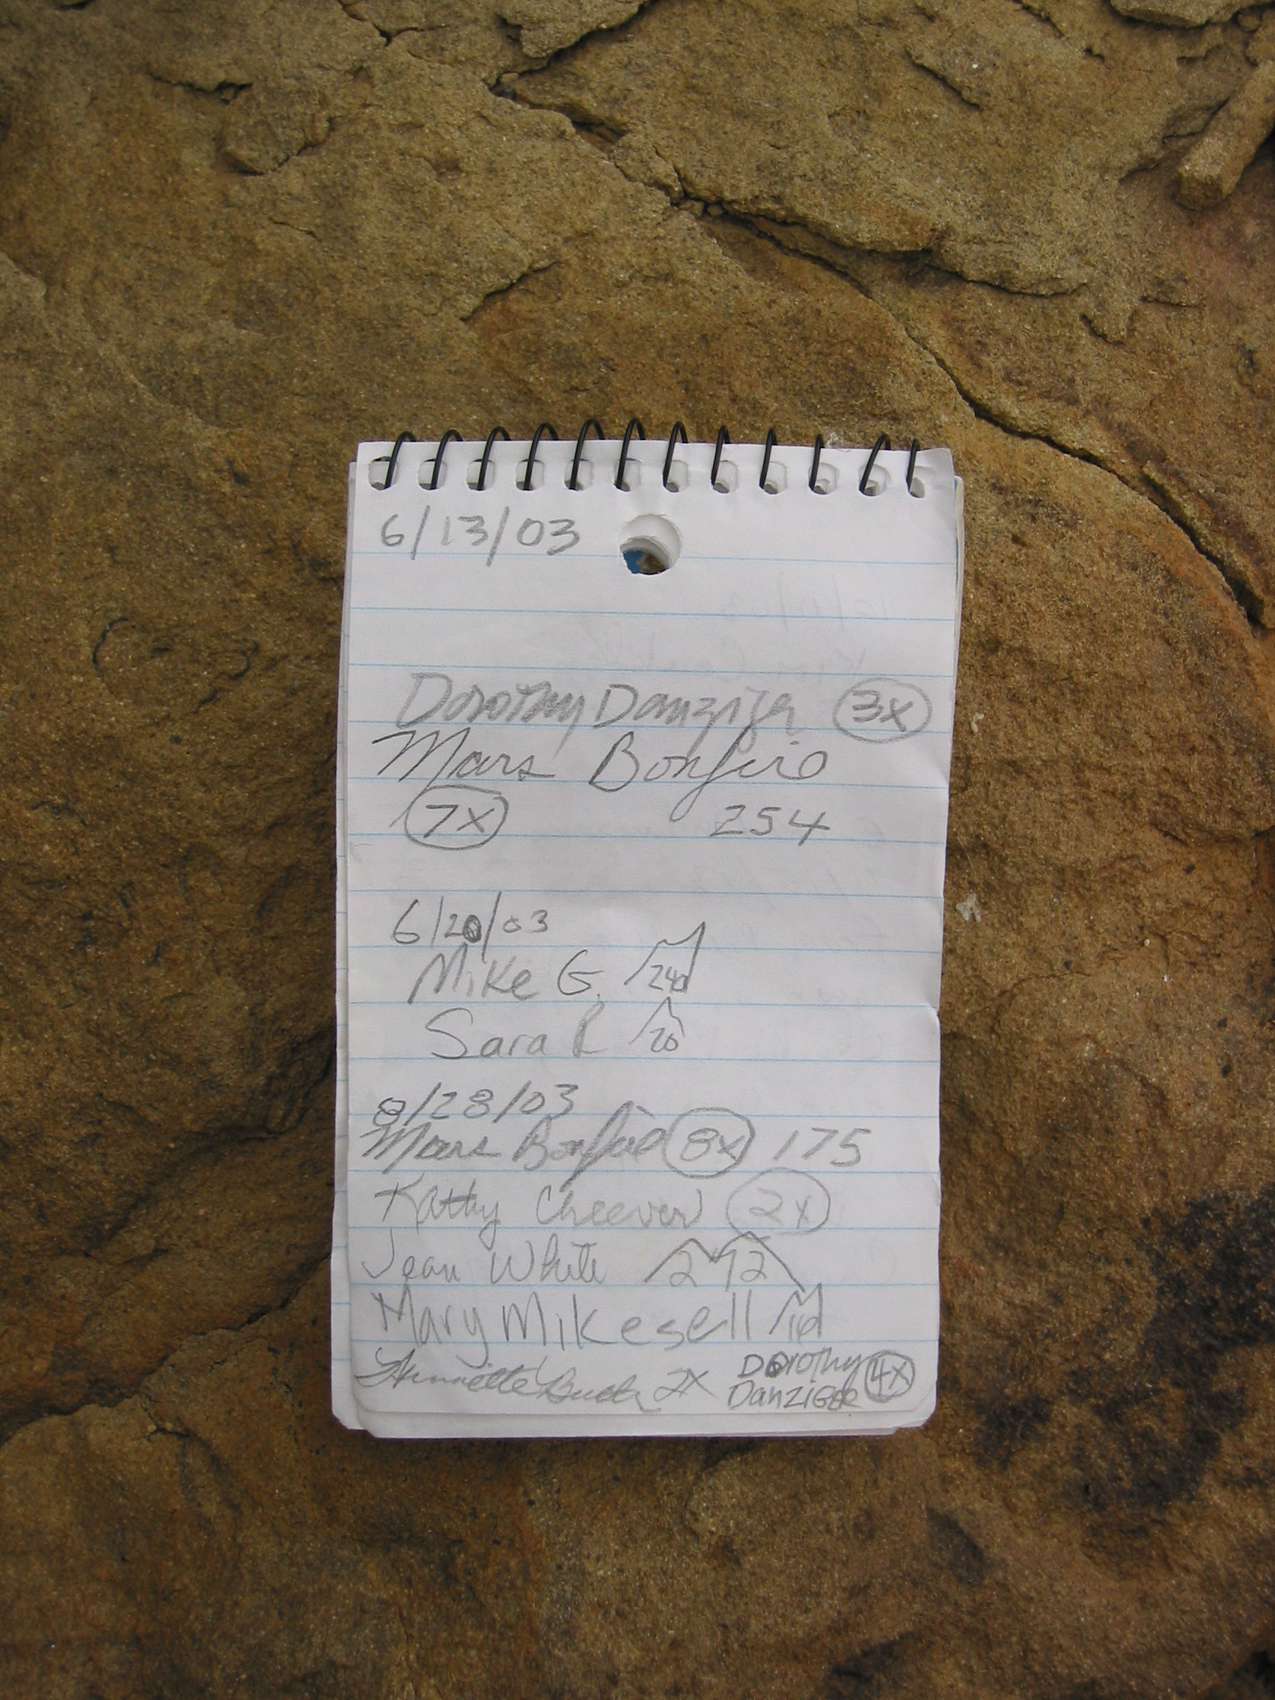 6/13/03
Dorothy Danziger 3x
Mars Bonfire
7x 254
6/20/03
Mike G. 240
Sara R 20
8/28/03
Mars Bonfire 8x 175
Kathy Cheever 2x
Jean White 272
Mary Mikesell
2x Dorothy 4x
Danziger